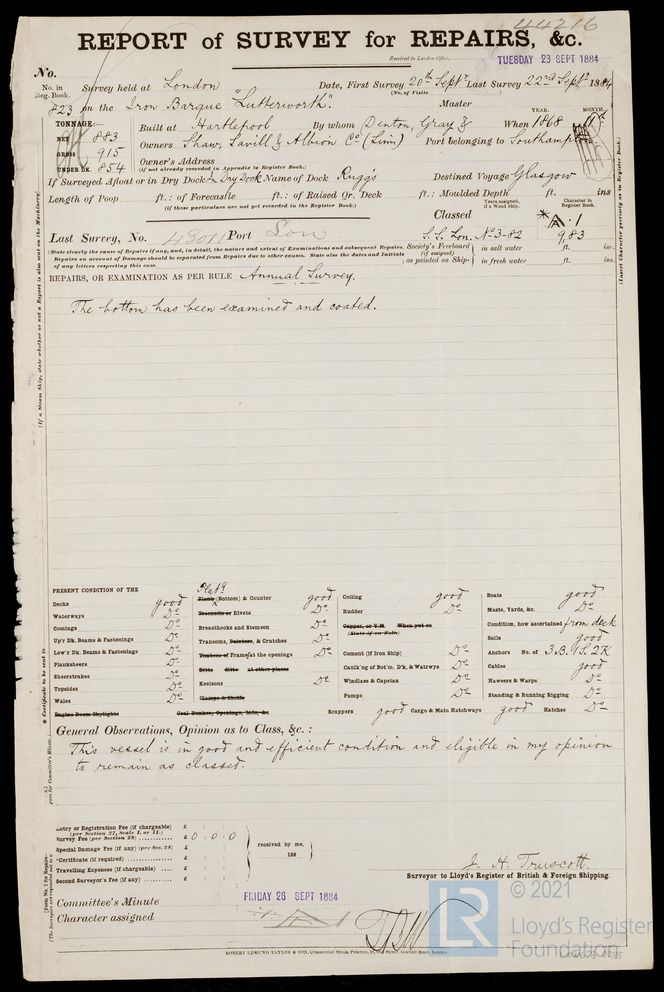 44216
REPORT of SURVEY for REPAIRS, &c.
Received in London Office,
TUESDAY 23 SEPT 1884
No.
No. in Reg. Book. Survey held at London Date, First Survey 20th Septr Last Survey 22nd Septr 1884
(No. of Visits
823 on the Iron Barque "Lutterworth". Master
TONNAGE:—
YEAR. MONTH.
NET 883 Built at Hartlepool By whom Denton, Gray & When 1868
GROSS 915 Owners Shaw, Savill & Albion Co (Lim) Port belonging to Southampton
UNDER DK. 854 Owner's Address
(if not already recorded in Appendix to Register Book.)
If Surveyed Afloat or in Dry Dock In Dry Dock Name of Dock Rugg's Destined Voyage Glasgow
Length of Poop ft.: of Forecastle ft.: of Raised Qr. Deck ft.: Moulded Depth ft. ins
(if these particulars are not yet recorded in the Register Book.)
Years assigned, if a Wood Ship. Character in Register Book.
Classed A.1
Last Survey, No. 43011 Port Lon S.S. Lon. No 3-82 9,83
(State clearly the cause of Repairs if any, and, in detail, the nature and extent of Examinations and subsequent Repairs. Repairs on account of Damage should be separated from Repairs due to other causes. State also the dates and Initials of any letters respecting this case.
Society's Freeboard (if assigned) as painted on Ship- in salt water ft. ins.
in fresh water ft. ins.
REPAIRS, OR EXAMINATION AS PER RULE Annual Survey.
The bottom has been examined and coated.
(If a Steam Ship, state whether or not a Report is also sent on the Machinery.
(Insert Character precisely as in Register Book.)
PRESENT CONDITION OF THE
Decks good
Waterways Do
Comings Do
Up'r Dk. Beams & Fastenings Do
Low'r Dk. Beams & Fastenings Do
Planksheers Do
Sheerstrakes Do
Topsides Do
Wales Do
Engine Room Skylights
Platg
Plank (Bottom) & Counter good
Treenails or Rivets Do
Breasthooks and Stemson Do
Transoms, Pointers, & Crutches Do
Timbers of Frames at the openings Do
Ditto ditto at other places
Keelsons Do
Clamps & Shelfs
Coal Bunker, Openings, Lids, &c.
Ceiling good
Rudder Do
Copper, or Y.M. When put on
(State if on Felt.)
Cement (if Iron Ship) Do
Caulk'ng of Bot'm, D'k, & Wat'rwys Do
Windlass & Capstan Do
Pumps Do
Scuppers good Cargo & Main Hatchways good Hatches Do
Boats good
Masts, Yards, &c. Do
Condition, how ascertained from deck
Sails good
Anchors No. of 3.B. 1S. 2K
Cables good
Hawsers & Warps Do
Standing & Running Rigging Do
General Observations, Opinion as to Class, &c.:
This vessel is in good and efficient condition and eligible in my opinion
to remain as classed.
Entry or Registration Fee (if chargeable) £
(per Section 27, Scale I. or II.)
Survey Fee (per Section 28) £ 0 . 0 . 0
Special Damage Fee (if any) (per Sec. 28) £
*Certificate (if required) £
Travelling Expenses (if chargeable) £
Second Surveyor's Fee (if any) £
received by me,
188
J. H. Truscott.
Surveyor to Lloyd's Register of British & Foreign Shipping.
Committee's Minute FRIDAY 26 SEPT 1884
Character assigned
ROBERT EDMUND TAYLOR & SON, Commercial Steam Printers,
LR
© 2021
Lloyd's Register
Foundation